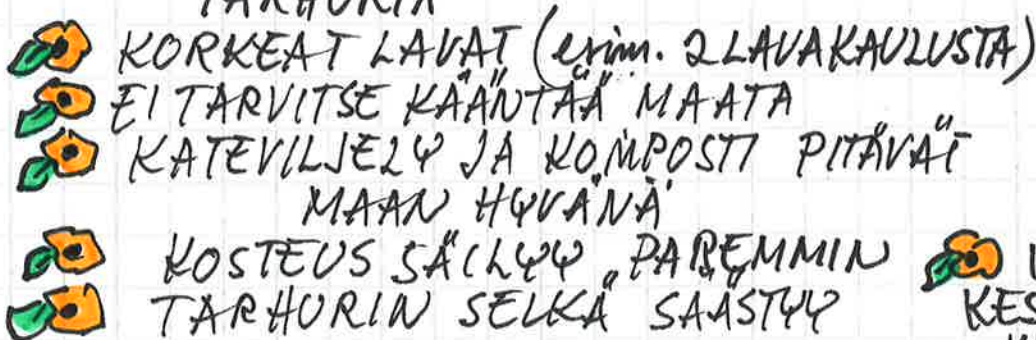 TARHURIA
KORKEAT LAVAT (esim. 2 LAVAKAULUSTA)
EI TARVITSE KÄÄNTÄÄ MAATA
KATEVILJELY JA KOMPOSTI PITÄVÄT
MAAN HYVÄNÄ
KOSTEUS SÄILYY PAREMMIN
TARHURIN SELKÄ SÄÄSTYY
KES